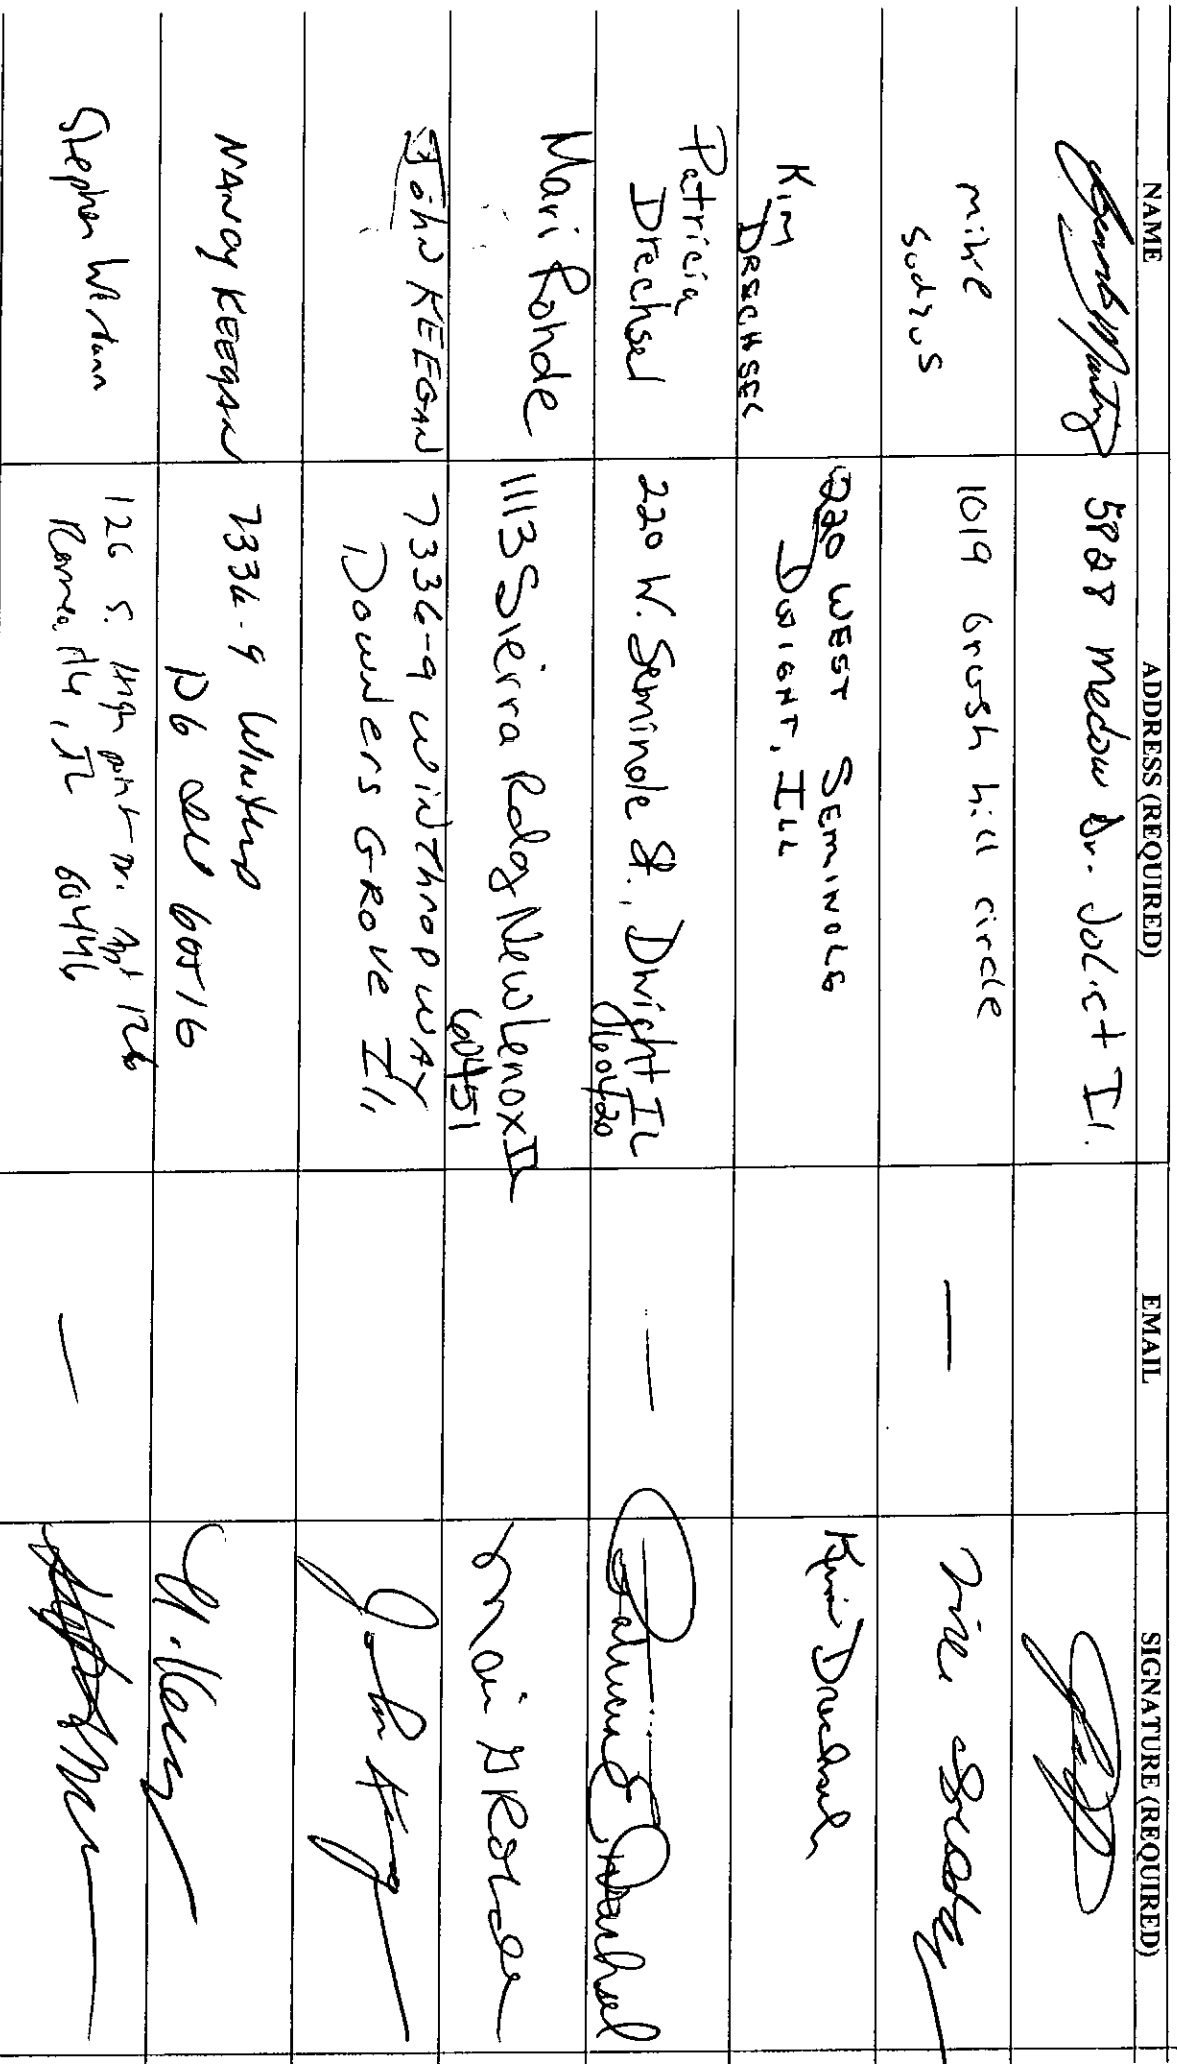 NAME ADDRESS (REQUIRED) EMAIL SIGNATURE (REQUIRED)
5828 Medow Dr. Joliet Il.
mike
Sodzus
1019 brush hill circle
—
Kim
DRECHSEL
220 WEST SEMINOLE
DWIGHT, ILL
Kim Drechsel
Patricia
Drechsel
220 W. Seminole St., Dwight IL
60420
—
Patricia E. Drechsel
Mari Rohde
1113 Sierra Rdg New Lenox IL
60451
Mari G Rohde
John KEEGAN
7336-9 Winthrop WAY
Downers GROVE Il,
NANCY KEEGAN
7336-9
DG 60516
Stephen
126 S. High point Dr. Apt 126
IL 60446
—